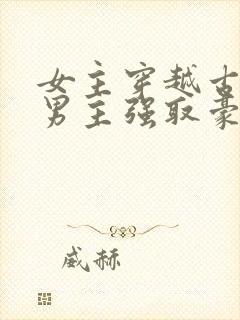 女主穿越古
男主强取豪
威赫